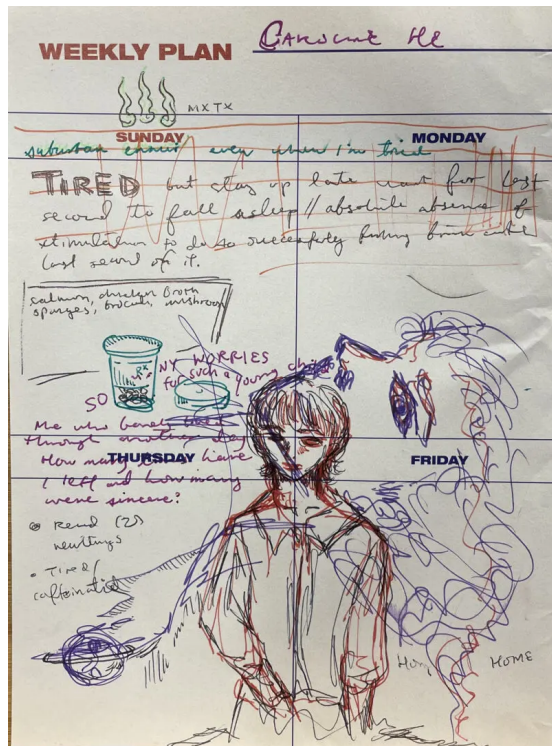 WEEKLY PLAN
CAROLINE HE
MXTX
SUNDAY
MONDAY
suburban even when I'm tired
TIRED but stay up late wait for last
second to fall asleep // absolute absence of
stimulation to do so successfully brain until
last second of it.
salmon, chicken Broth
sponges, brocoli, mushroom
NY WORRIES
for such a young
SO
Me who
through another day
How many have
THURSDAY
FRIDAY
I left and how many
were sincere?
Read (20)
TIRED/
caffeinated
HOME